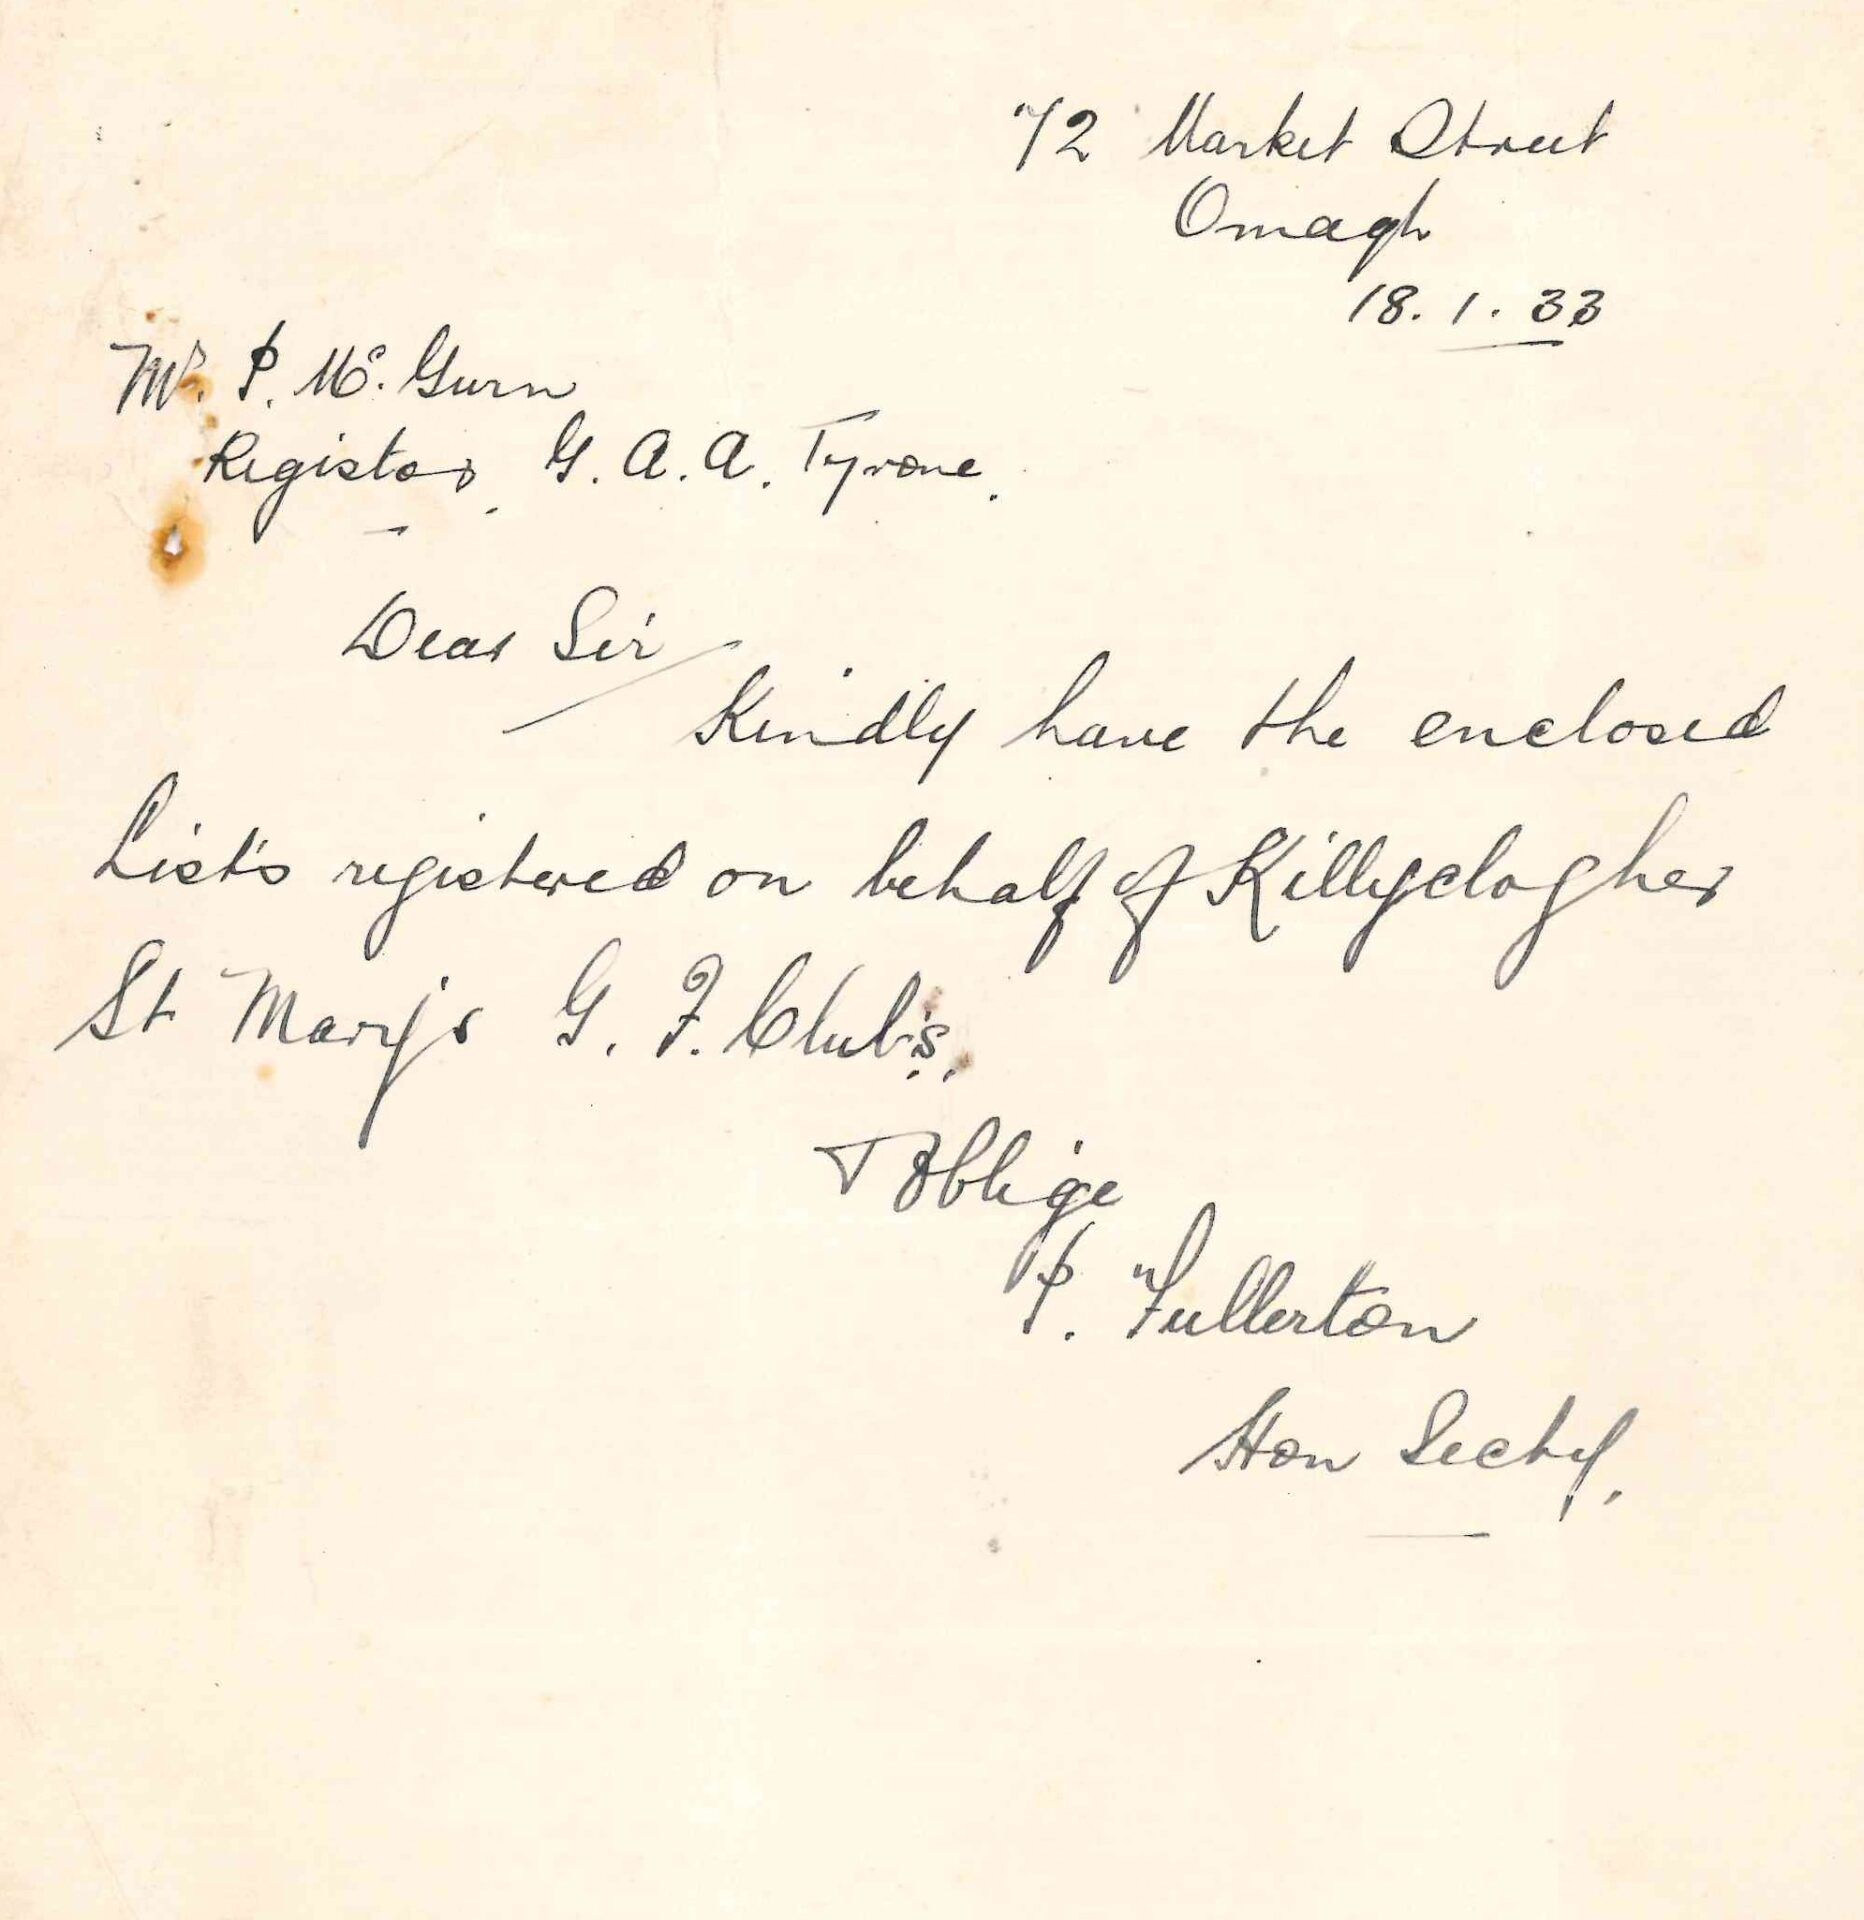 72 Market Street
Omagh
18.1.33
Mr. P. Mc. Gurn
Registor, G. A. A. Tyrone.
Dear Sir
Kindly have the enclosed
List's registered on behalf of Killyclogher
St Mary's G. F. Club's.
T Oblige
P. Fullerton
Hon Secty.